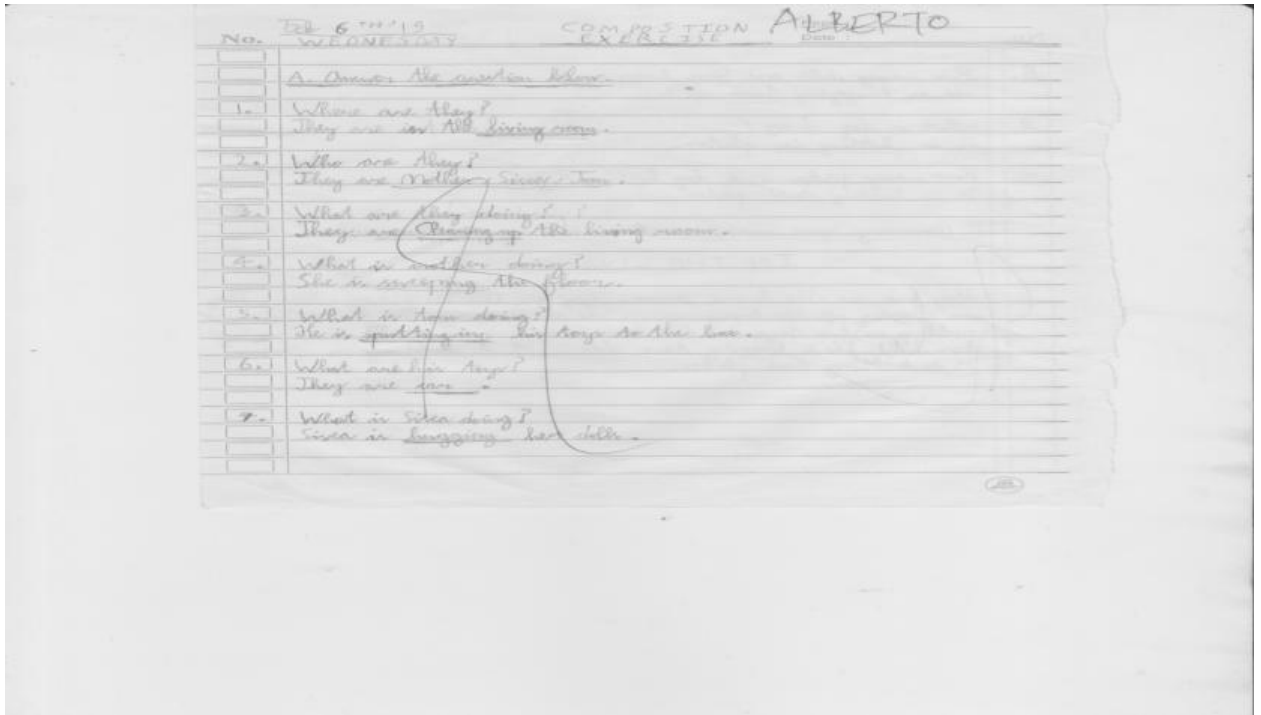 Feb 6 TH / 19 COMPOSTION ALBERTO
No. WEDNESDAY EXERCISE Date :
A. Answer the question below.
1. Where are they?
They are in the living room.
2. Who are they?
They are Mother, Sisca, Tom.
3. What are they doing?
They are Cleaning up the living room.
4. What is mother doing?
She is sweeping the floor.
5. What is tom doing?
He is putting in his toys to the box.
6. What are his toys?
They are car.
7. What is Sisca doing?
Sisca is hugging her dolls.